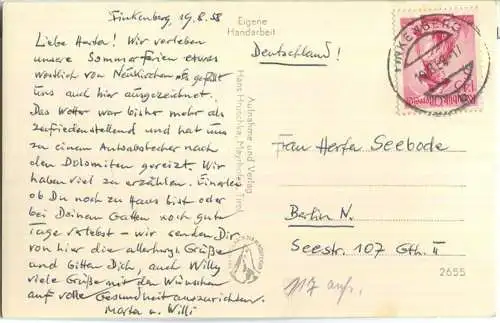 Finkenberg, 19.8.58
Liebe Herta! Wir verleben
unsere Sommerferien etwas
westlich von Neukirchen. Es gefällt
uns auch hier ausgezeichnet.
Das Wetter war bisher mehr als
zufriedenstellend und hat uns
zu einem Autoabstecher nach
den Dolomiten gereizt. Wir
haben viel zu erzählen. Einerlei
ob Du noch zu Haus bist oder
bei Deinem Gatten noch gute
Tage verlebst – wir senden Dir
von hier die allerherzl. Grüße
und bitten Dich, auch Willy
viele Grüße mit den Wünschen
auf volle Gesundheit auszurichten.
Marta u. Willi
Eigene
Handarbeit
Aufnahme und Verlag
Hans Hruschka, Mayrhofen, Tirol
Deutschland!
FINKENBERG
Republik Österreich
Frau Herta Seebode
Berlin N.
Seestr. 107 Gth. II
117 anf.
2655